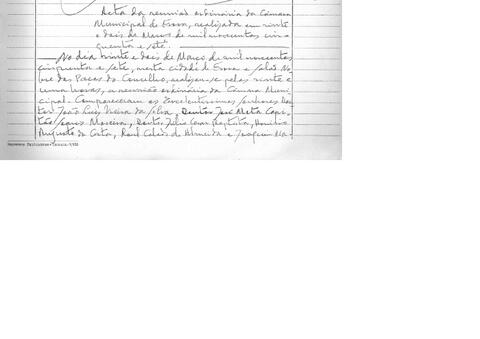 Acta da reunião ordinária da Câmara
Municipal de Évora, realizada em vinte
e dois de Março de mil novecentos cin-
quenta e sete.
No dia vinte e dois de Março de mil novecentos
cinquenta e sete, nesta cidade de Évora e salas No
bre dos Paços do Concelho, realizou-se pelas vinte e
uma horas, a reunião ordinária da Câmara Muni-
cipal. Compareceram os Excelentíssimos senhores Dou
tor João Luís Vieira da Silva, Doutor José Mata
Moreira, Doutor Júlio Cesar Baptista,
Augusto da Costa, Raul de Almeida e Joaquim